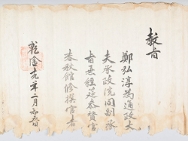 敎旨
鄭弘淳爲通政大
夫承政院同副承
旨兼經筵參贊官
春秋館修撰官者
乾隆十九年二月